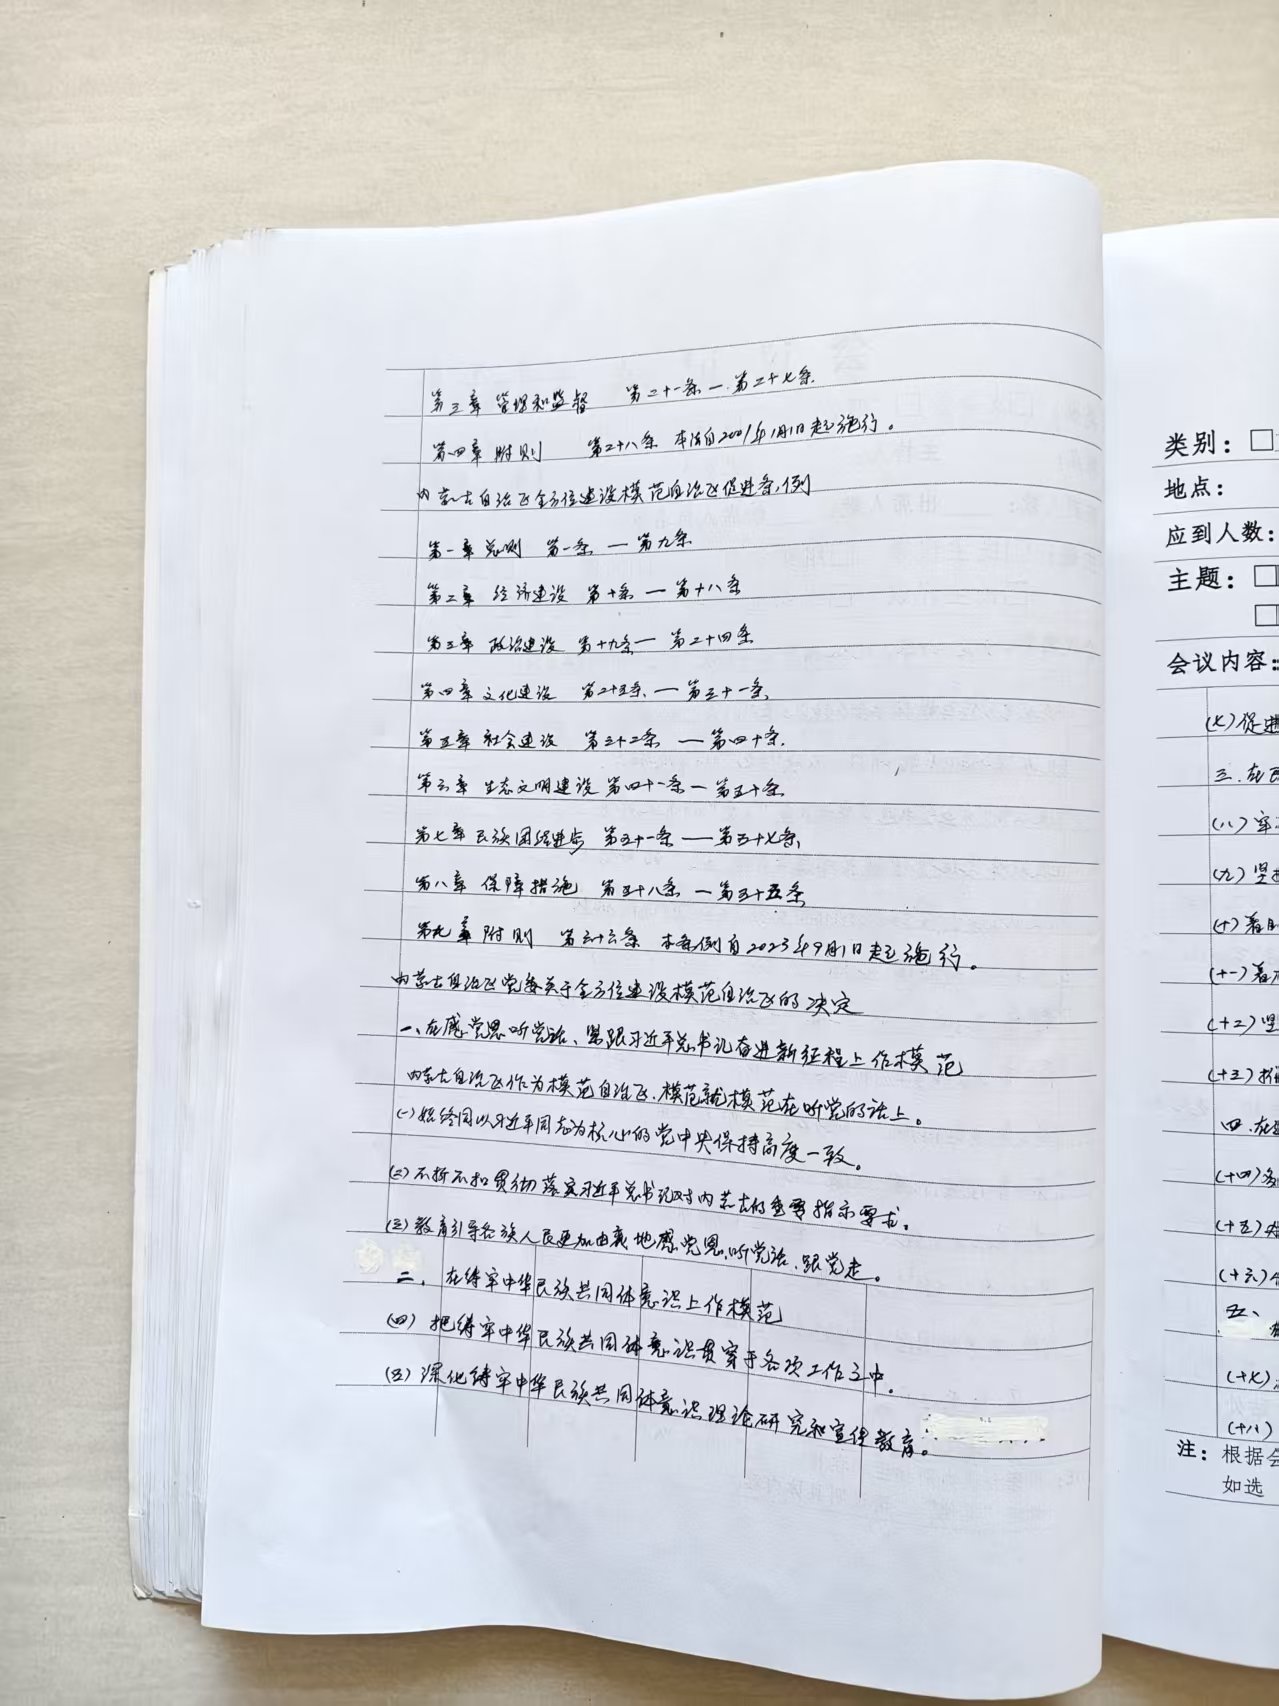 第三章 管理和监督 第二十一条 — 第二十七条
第四章 附则 第二十八条 本法自2001年1月1日起施行。
内蒙古自治区全方位建设模范自治区促进条例
第一章 总则 第一条 — 第九条
第二章 经济建设 第十条 — 第十八条
第三章 政治建设 第十九条 — 第二十四条
第四章 文化建设 第二十五条 — 第三十一条
第五章 社会建设 第三十二条 — 第四十条
第六章 生态文明建设 第四十一条 — 第五十条
第七章 民族团结进步 第五十一条 — 第五十七条
第八章 保障措施 第五十八条 — 第五十五条
第九章 附则 第六十六条 本条例自2023年9月1日起施行。
内蒙古自治区党委关于全方位建设模范自治区的决定
一、在感党恩、听党话、紧跟习近平总书记奋进新征程上作模范
内蒙古自治区作为模范自治区,模范就模范在听党的话上。
(一)始终同以习近平同志为核心的党中央保持高度一致。
(二)不折不扣贯彻落实习近平总书记对内蒙古的重要指示要求。
(三)教育引导各族人民更加由衷地感党恩、听党话、跟党走。
二、在铸牢中华民族共同体意识上作模范
(四)把铸牢中华民族共同体意识贯穿于各项工作之中。
(五)深化铸牢中华民族共同体意识理论研究和宣传教育。
类别:□
地点:
应到人数:
主题:□
□
会议内容:
(七)促进
三、在
(八)牢
(九)坚持
(十)着
(十一)着
(十二)坚
(十三)
四、在
(十四)
(十五)
(十六)
五、
(十七)
(十八)
注:根据会
如选